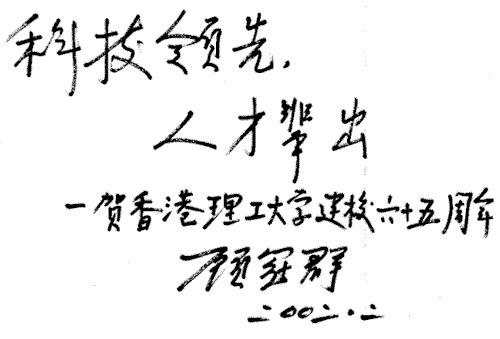 科技领先,
人才辈出
一贺香港理工大学建校六十五周年
顾冠群
二〇〇二.二